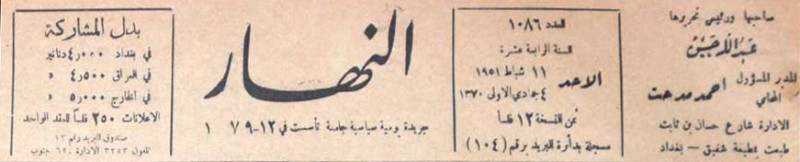 صاحبها ورئيس تحريرها
عبد الله حسن
المدير المسؤول
المحامي احمد مدحت
الادارة شارع حسان بن ثابت
طبعت بمطبعة شفيق - بغداد
العدد ١٠٨٦
السنة الرابعة عشرة
الاحد
١١ شباط ١٩٥١
٤ جمادي الاولى ١٣٧٠
ثمن النسخة ١٢ فلسا
مسجلة بدائرة البريد برقم (١٠٤)
النهار
جريدة يومية سياسية جامعة تأسست في ١٢-٩ ٧ ١
بدل المشاركة
في بغداد ٤٫٠٠٠ دنانير
في العراق ٤٫٥٠٠ »
في الخارج ٥٫٠٠٠ »
الاعلانات ٢٥٠ فلسا للعقد الواحد
صندوق البريد رقم ١٣
تلفون ٣٢٥٣ الادارة ٦٢٠ جنوب